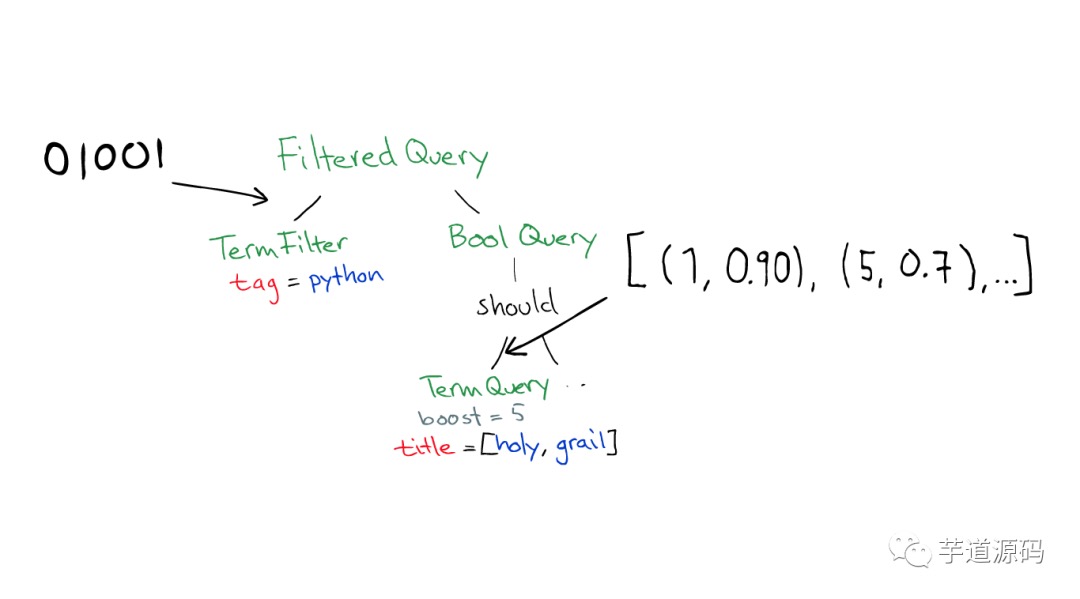 01001
Filtered Query
TermFilter
tag = python
Bool Query
[(1, 0.90), (5, 0.7), ...]
should
TermQuery ..
boost = 5
title = [holy, grail]
芋道源码